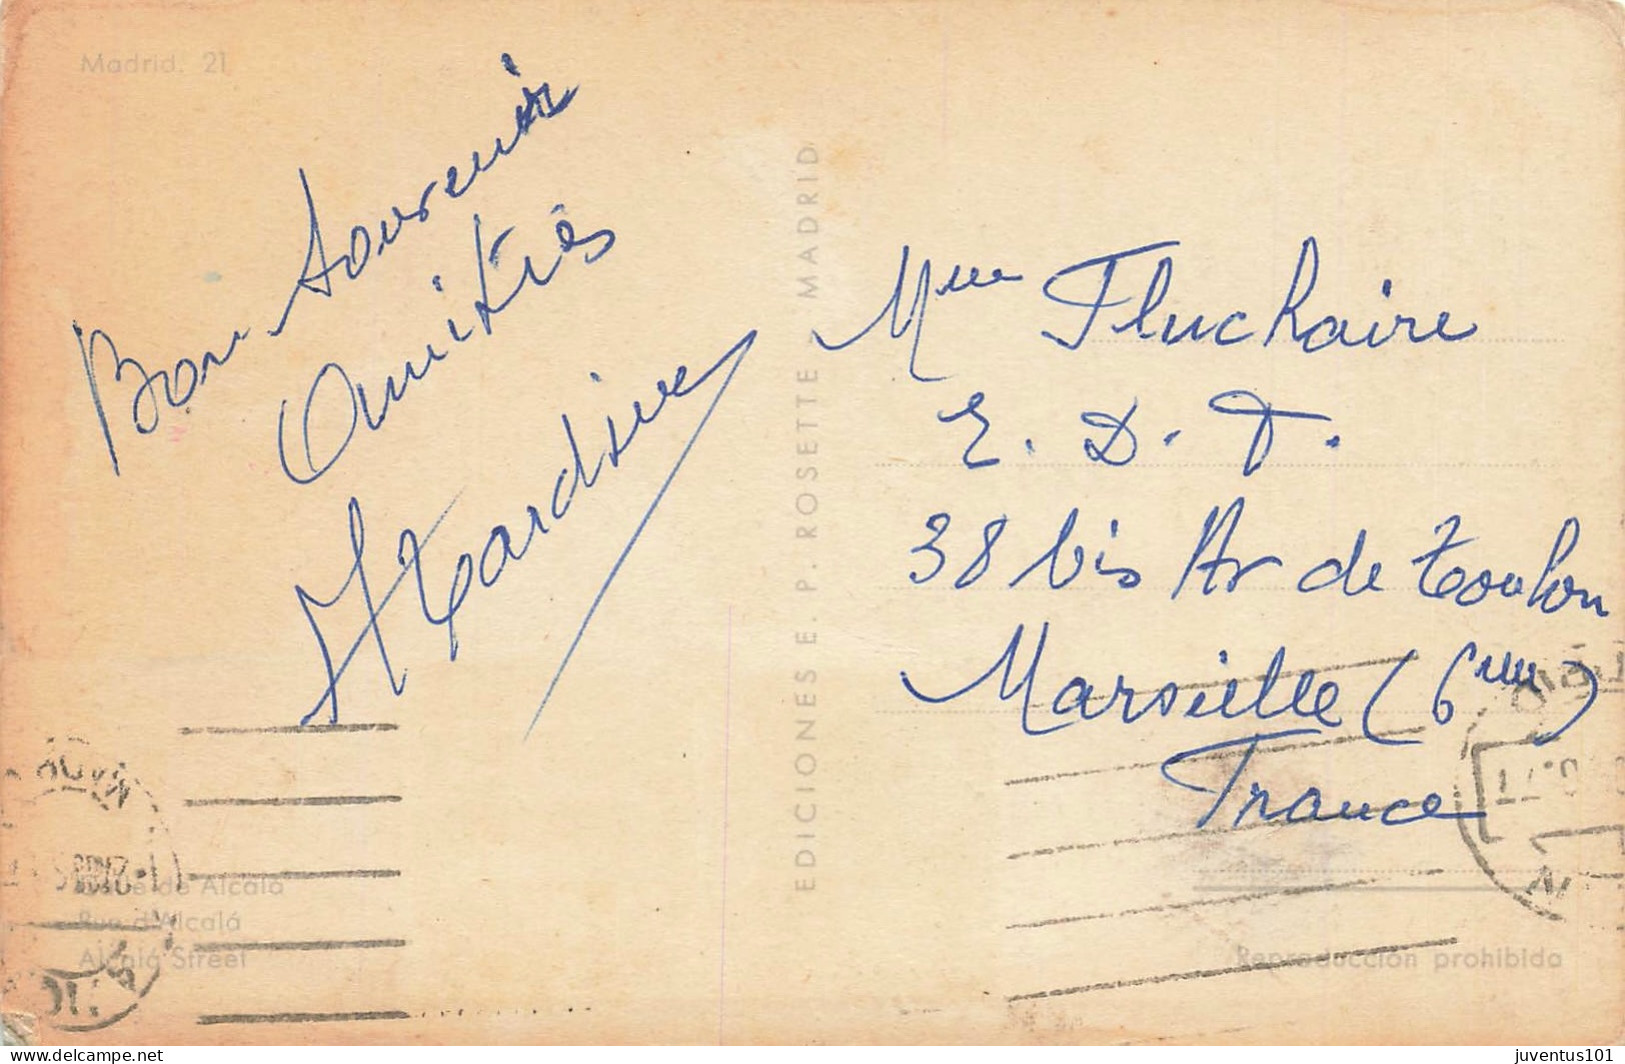 Madrid. 21
Bon souvenir
Amitiés
Mme Fluchaire
E. D. T.
38 bis Av de Toulon
Marseille (6eme)
France
EDICIONES E. P. ROSETTE - MADRID
Calle de Alcalá
Rue d'Alcalá
Alcalá Street
Reproducción prohibida
delcampe.net
juventus101